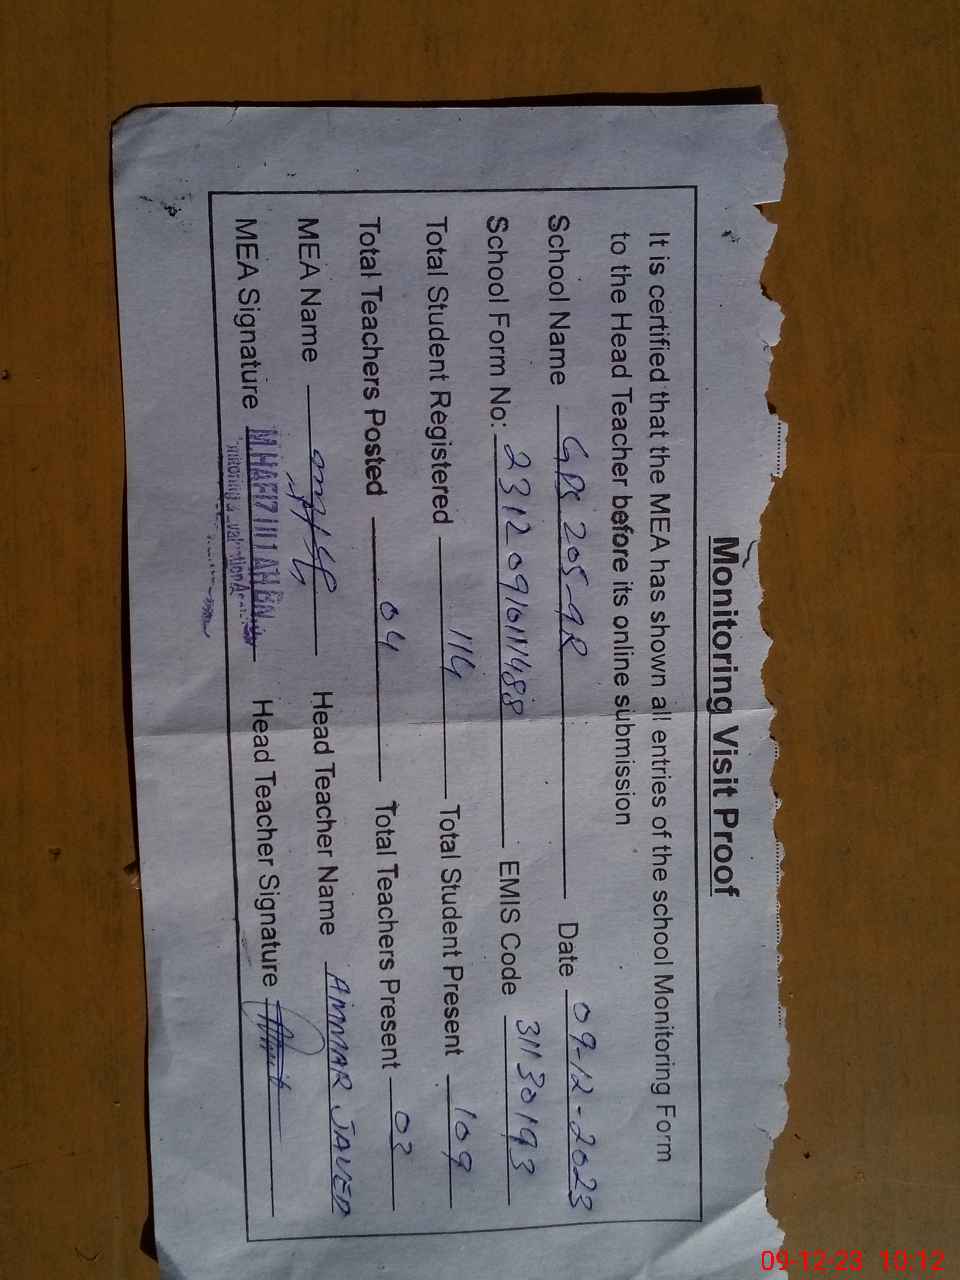 Monitoring Visit Proof
It is certified that the MEA has shown all entries of the school Monitoring Form
to the Head Teacher before its online submission
School Name GPS 205-9R Date 09-12-2023
School Form No: 23120910111488 EMIS Code 31130193
Total Student Registered 114 Total Student Present 109
Total Teachers Posted 04 Total Teachers Present 03
MEA Name Head Teacher Name AMMAR JAVED
MEA Signature Head Teacher Signature
09-12-23 10:12